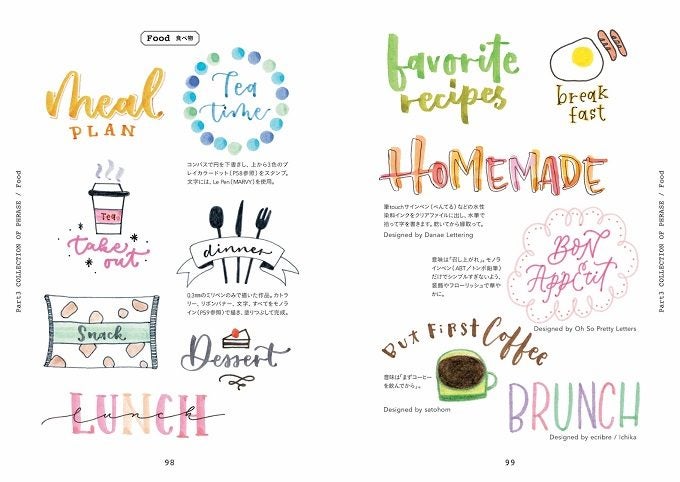 Part3 COLLECTION OF PHRASE / Food
Food 食べ物
meal
PLAN
Tea
time
コンパスで円を下書きし、上から3色のプ
レイカラードット(P58参照)をスタンプ。
文字には、Le Pen(MARVY)を使用。
Tea
take
out
dinner
0.3mmのミリペンのみで描いた作品。カトラ
リー、リボンバナー、文字、すべてをモノラ
イン(P59参照)で描き、塗りつぶして完成。
Snack
Dessert
LUNCH
lunch
98
favorite
recipes
break
fast
HOMEMADE
筆touchサインペン(ぺんてる)などの水性
染料インクをクリアファイルに出し、水筆で
拾って字を書きます。乾いてから縁取って。
Designed by Danae Lettering
意味は「召し上がれ」。モノラ
インペン(ABT/トンボ鉛筆)
だけでシンプルすぎないよう、
装飾やフローリッシュで華や
かに。
BON
APPÉTIT
Designed by Oh So Pretty Letters
BUT FIRST Coffee
意味は「まずコーヒー
を飲んでから」。
Designed by satohom
BRUNCH
Designed by ecribre / Ichika
99
Part3 COLLECTION OF PHRASE / Food